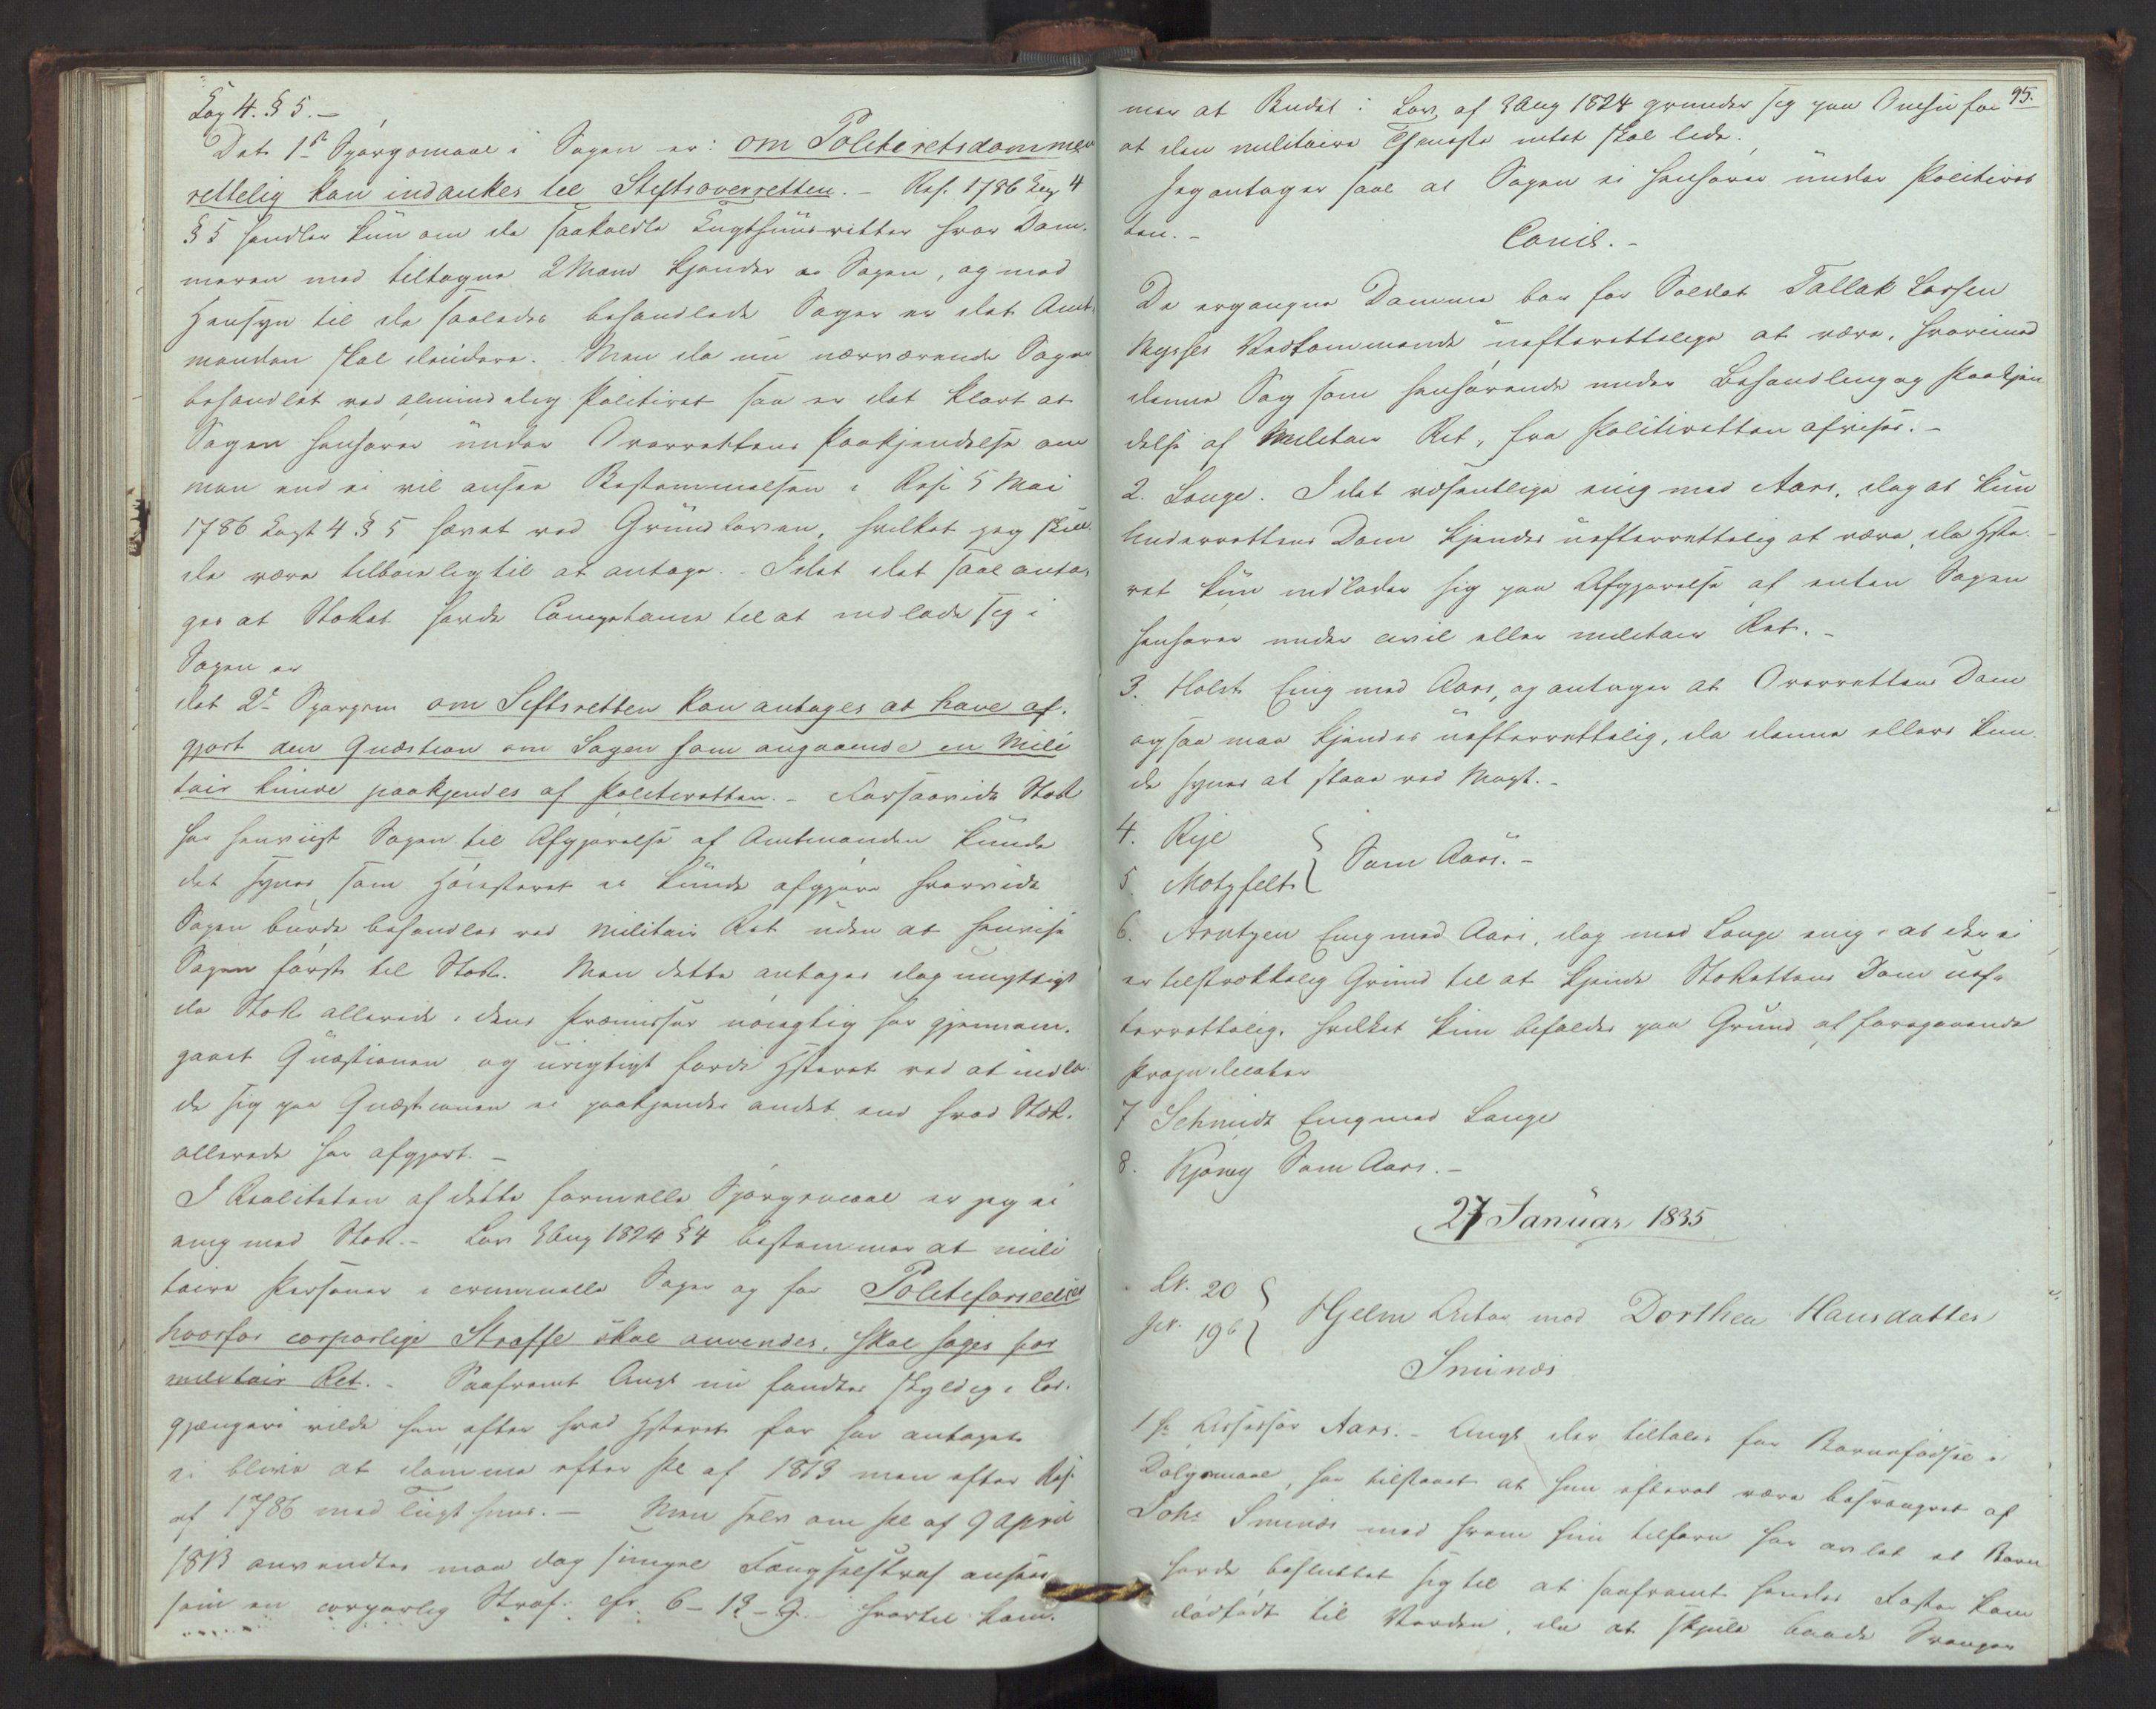 Cap 4. § 5. –
Det 1ste Spørgsmaal i Sagen er: om Politeretsdommen
rettelig kan indankes til Stiftsoverretten. – Res. 1786 Cap 4
§ 5 handler kun om de saakaldte Tugthuusretter hvor Dom-
meren med tiltagne 2 Mænd kjender i Sagen, og med
Hensyn til de saaledes behandlede Sager er det Amt-
manden skal decidere. Men da nu nærværende Sag er
behandlet ved almindelig Politiret saa er det klart at
Sagen henhører under Overrettens Paakjendelse om
man end ei vil ansee Bestemmelsen i Res. 5 Mai
1786 Capt 4 § 5 hævet ved Grundloven, hvilket jeg skul-
de være tilbøielig til at antage. – Idet det saal. anta-
ges at StoRet havde Competance til at indlade sig i
Sagen er
det 2det Spørgsm om Stiftsretten kan antages at have af-
gjort den Quæstion om Sagen som angaaende en Mili
tair kunde paakjendes af Politeretten. – Forsaavidt StoR
har henviist Sagen til Afgjørelse af Amtmanden kunde
det synes som Høiesteret ei kunde afgjøre hvorvidt
Sagen burde behandles ved Militair Ret uden at henvise
Sagen først til StoR. Men dette antages dog unyttigt
da StoR allerede i dens Præmisser nøiagtig har gjennem-
gaaet Quæstionen og urigtigt fordi Hsteret ved at indla-
de sig paa Quæstionen ei paakjender andet end hvad StoR.
allerede har afgjort. –
I Realiteten af dette formelle Spørgsmaal er jeg ei
enig med StoR. – Lov 3 Aug 1824 § 4 bestemmer at mili
taire Personer i criminelle Sager og for Politeforseelser
hvorfor corporlige Straffe skal anvendes, skal søges for
militair Ret. – Saafremt Angk nu fandtes skyldig i Løs-
gjængeri vilde han efter hvad Hsteret før har antaget
ei blive at dømme efter Pl af 1813 men efter Res.
af 1786 med Tugthuus. – Men selv om Pl af 9 April
1813 anvendtes maa dog simpel Fængselstraf ansees
som en corporlig Straf. cfr. 6 – 12 – 9. hvortil kom-
95.
mer at Budet i Lov af 3 Aug 1824 grunder sig paa Omsu for
at den militaire Tjeneste intet skal lide.
Jeg antager saal. at Sagen ei henhører under Politiret
ten. –
Concl. –
De ergangne Domme bør for Soldat Tallak Larsen
Mysses Vedkommende uefterrettelige at være, hvorimod
denne Sag som henhørende under Behandling og Paakjen
delse af Militair Ret, fra Politiretten afvises. –
2. Lange. I det væsentlige enig med Aars, dog at kun
Underrettens Dom kjendes uefterrettelig at være, da Hste-
ret kun indlader sig paa Afgjørelse af enten Sagen
henhører under civil eller militair Ret. –
3. Holst Enig med Aars, og antager at Overrettens Dom
ogsaa maa kjendes uefterrettelig, da denne ellers kun-
de synes at staae ved Magt. –
4. Rije
5. Motzfelt } Som Aars. –
6. Arntzen Enig med Aars, dog med Lange enig i at der ei
er tilstrækkelig Grund til at kjende StoRettens Dom uef-
terrettelig, hvilket kun befaldes paa Grund af foregaaende
Præjudicater
7 Schmidt Enig med Lange
8. Kjønig Som Aars. –
27 Januar 1835
Lt. 20
Jt. 196 } Hjelm Actor mod Dorthea Hansdatter
Sminæs
1 Hr Assessor Aars. – Angk der tiltales for Barnefødsel i
Dølgsmaal, har tilstaaet at hun efterat være besvangret af
Johs Sminæs med hvem hun tilforn har avlet et Barn
havde besluttet sig til at saafremt hendes Foster kom
dødfødt til Verden, da at skjule baade Svanger